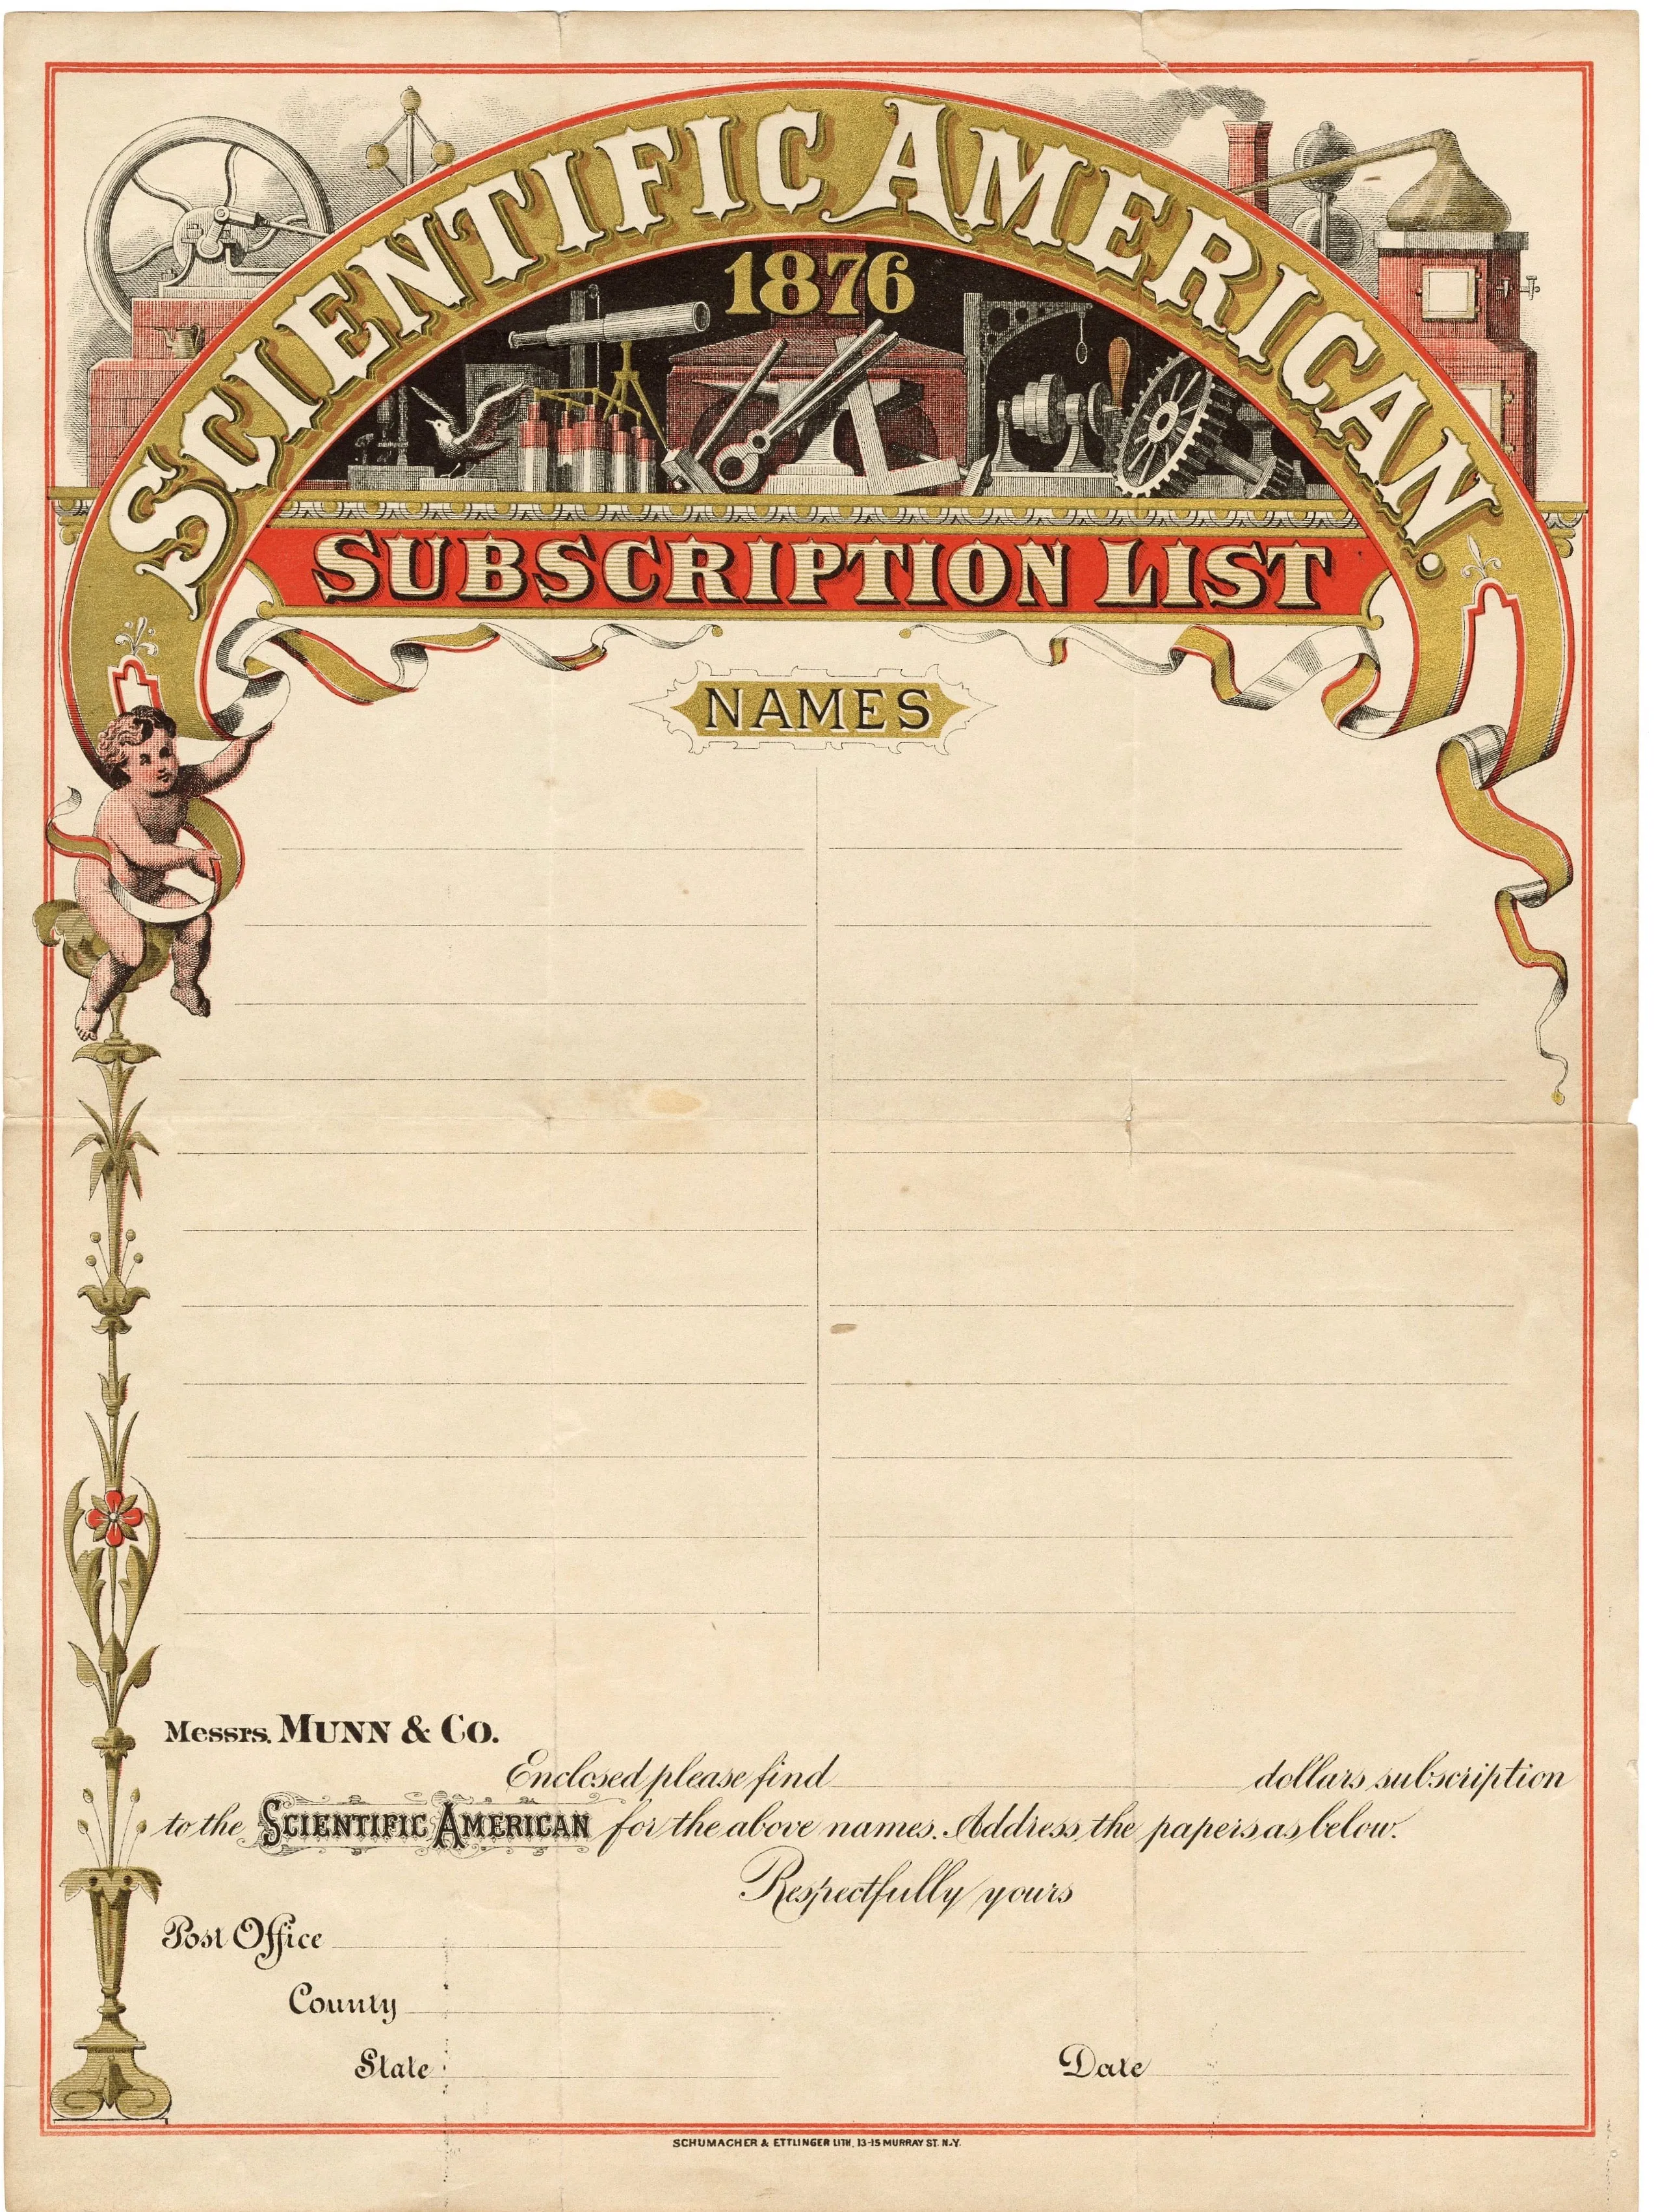 SCIENTIFIC AMERICAN.
1876
SUBSCRIPTION LIST
NAMES
Messrs. MUNN & CO.
Enclosed please find dollars subscription
to the SCIENTIFIC AMERICAN for the above names. Address the papers as below.
Respectfully yours
Post Office
County
State
Date
SCHUMACHER & ETTLINGER LITH. 13-15 MURRAY ST. N.Y.